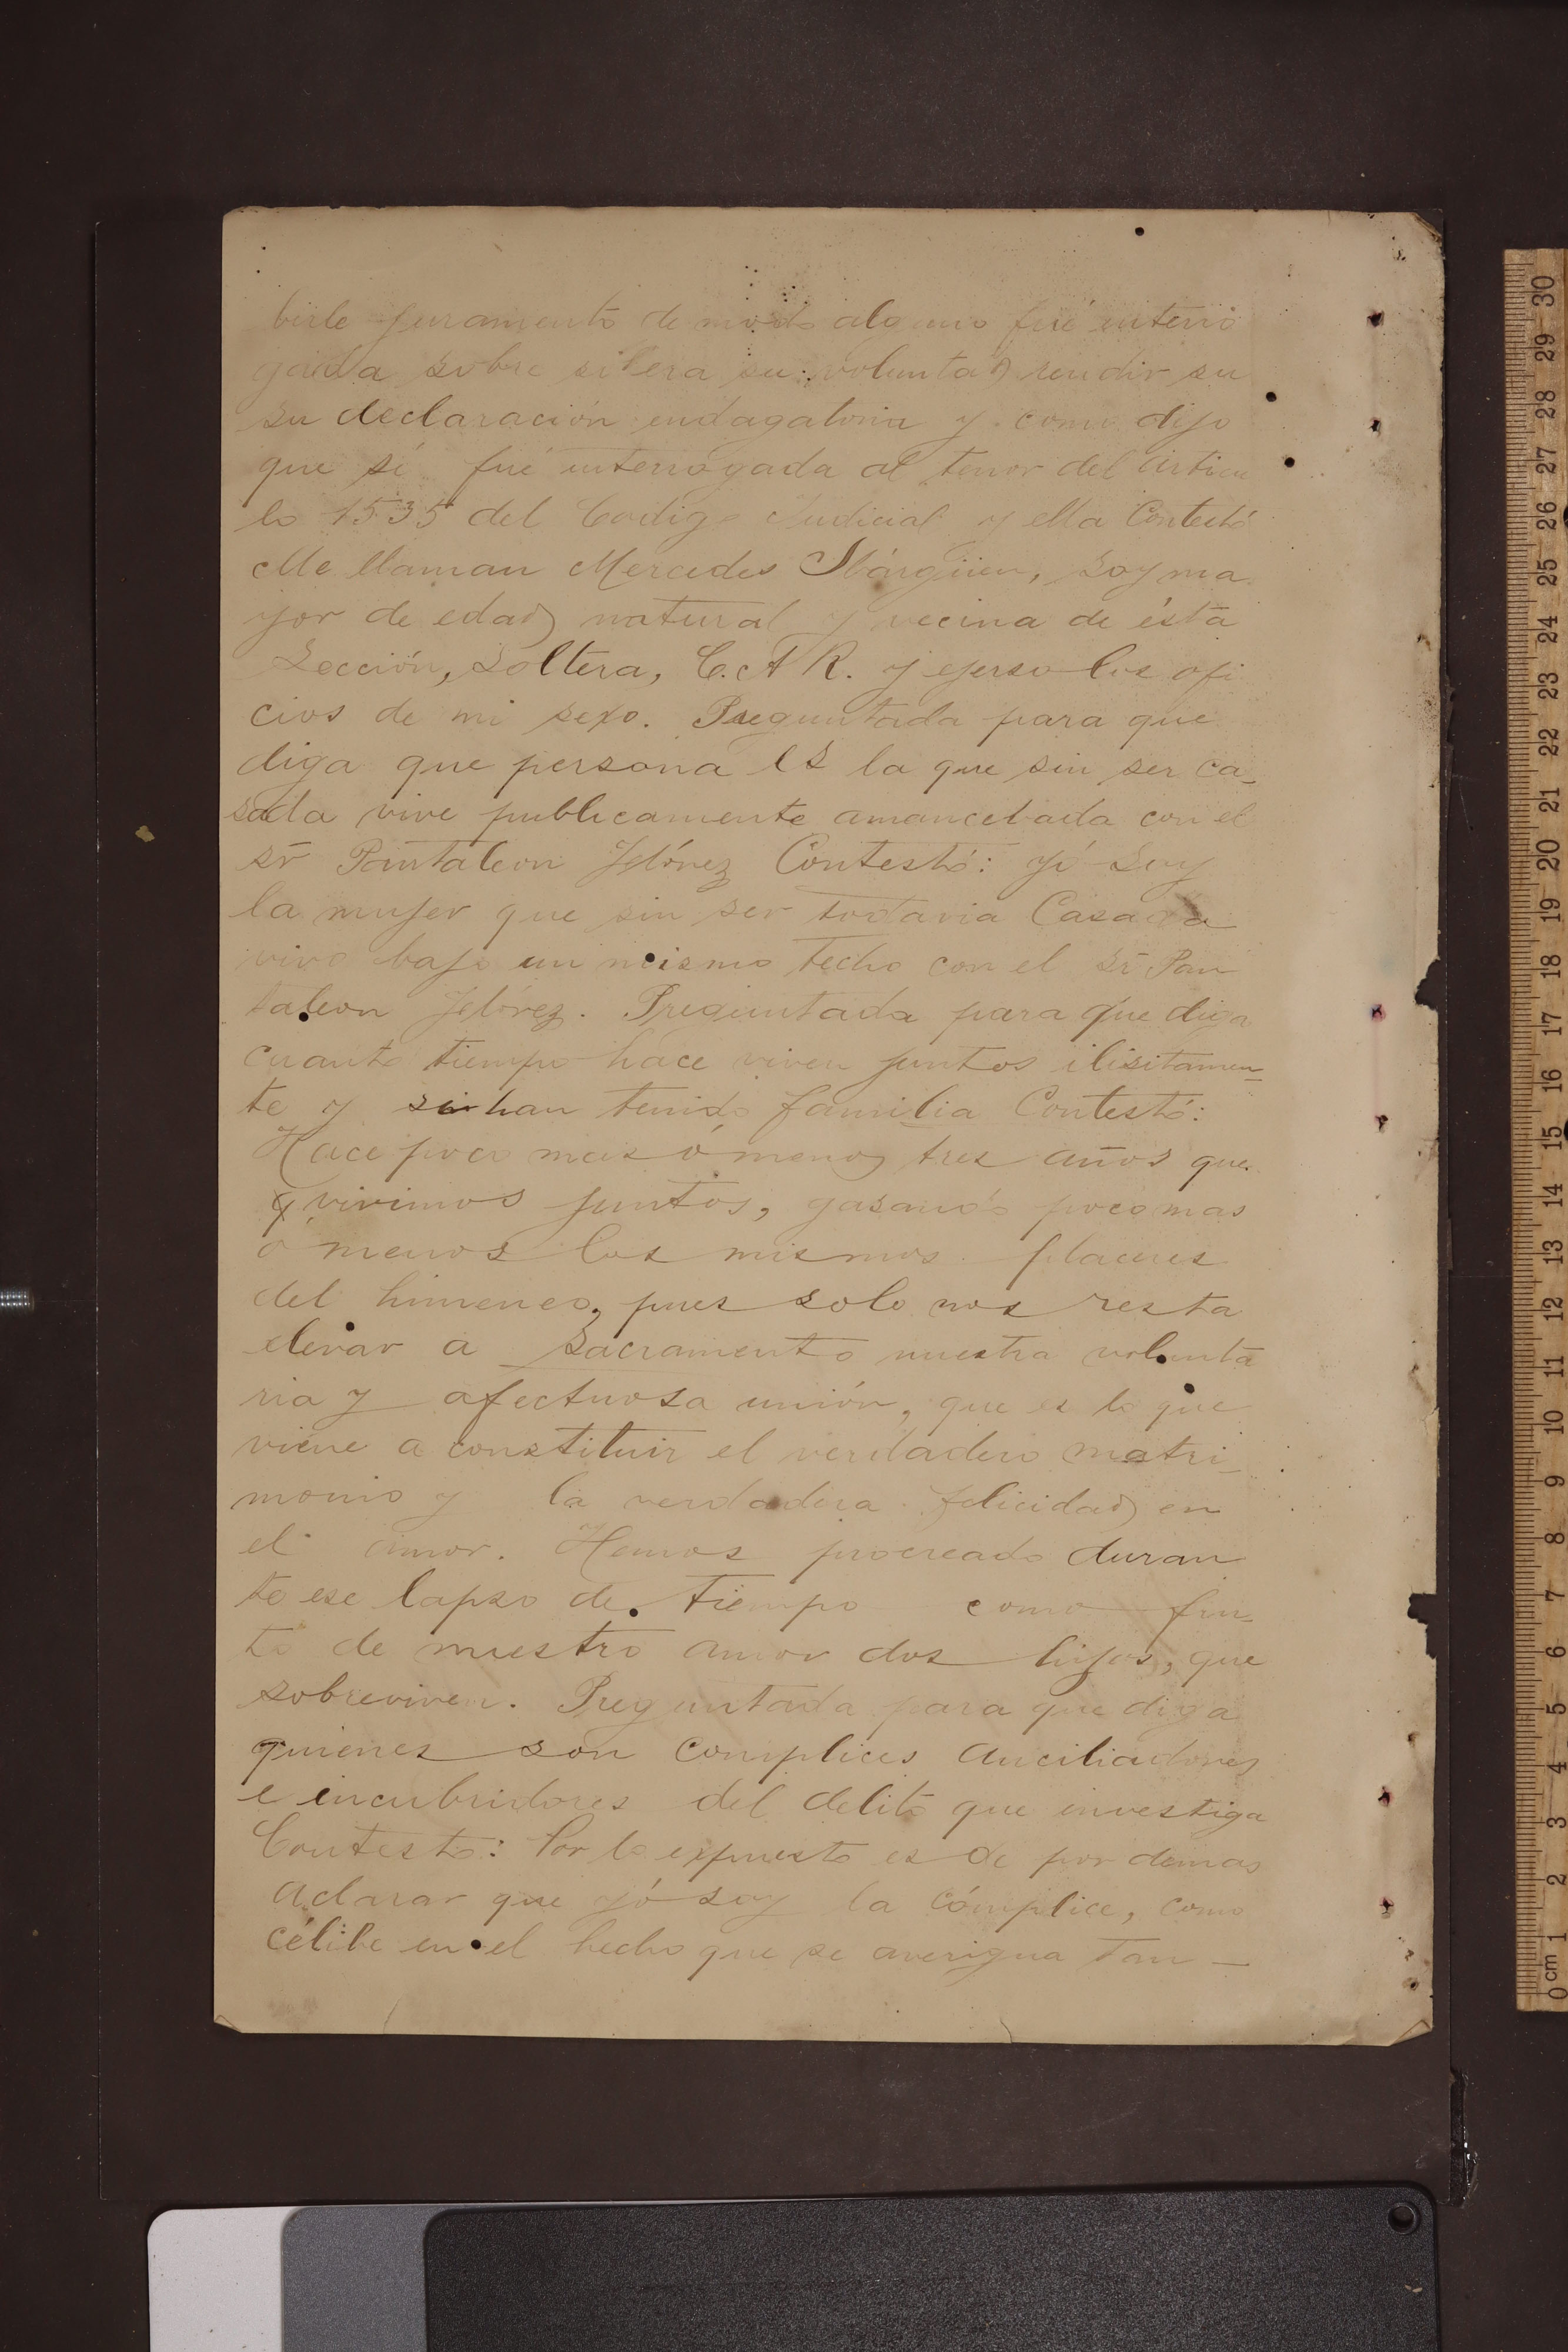 birle juramento de modo alguno fué interro
gada sobre si era su voluntad rendir su
su declaración endagatoria y como dijo
que sí fué interrógada al tenor del Articu
lo 1535 del Codigo Judicial y ella Contestó
Me llaman Mercedes Ibárgüen, soy ma
yor de edad natural y vecina de ésta
Sección, soltera, C. A R. y ejerso los ofi
cios de mi sexo. Preguntada para que
diga que persona es la que sin ser ca_
sada vive publicamente amancebada con el
sr Pantaleon Contestó: yó soy
la mujer que sin ser todavia Casada
vivo bajo un mismo techo con el sr Pan
taleon Preguntada para que diga
cuanto tiempo hace viven juntos ilisitamen_
te y si han tenido familia Contestó:
Hace poco mas ó menos tres años que
vivimos juntos, gasando poco mas
ó menos los mismos placeres
del himeneo, pues solo nos resta
elevar a sacramento nuestra volunta
ria y afectuosa unión, que es lo que
viene a constituir el verdadero matri_
monio y la verdadera felicidad en
el amor. Hemos procreado duran
te ese lapso de tiempo como fru_
to de nuestro amor dos hijos, que
sobreviven. Preguntada para que diga
quienes son complices auciliadores
e encubridores del delito que investiga
Contestó: Por lo expuesto es de por demas
aclarar que yó soy la cómplice, como
célibe en el hecho que se averigua Tan_